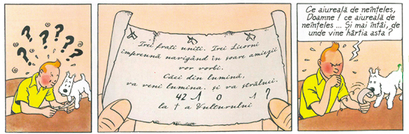 Trei frați uniți. Trei Licorni
împreună navigând în soare amiezii
vor vorbi.
Căci din lumină,
va veni lumina. și va străluci.
42 1 0 1 ?
la † a Vulturului
Ce aiureală de neînțeles,
Doamne! ce aiureală de
neînțeles... Și mai întâi, de
unde vine hârtia asta?